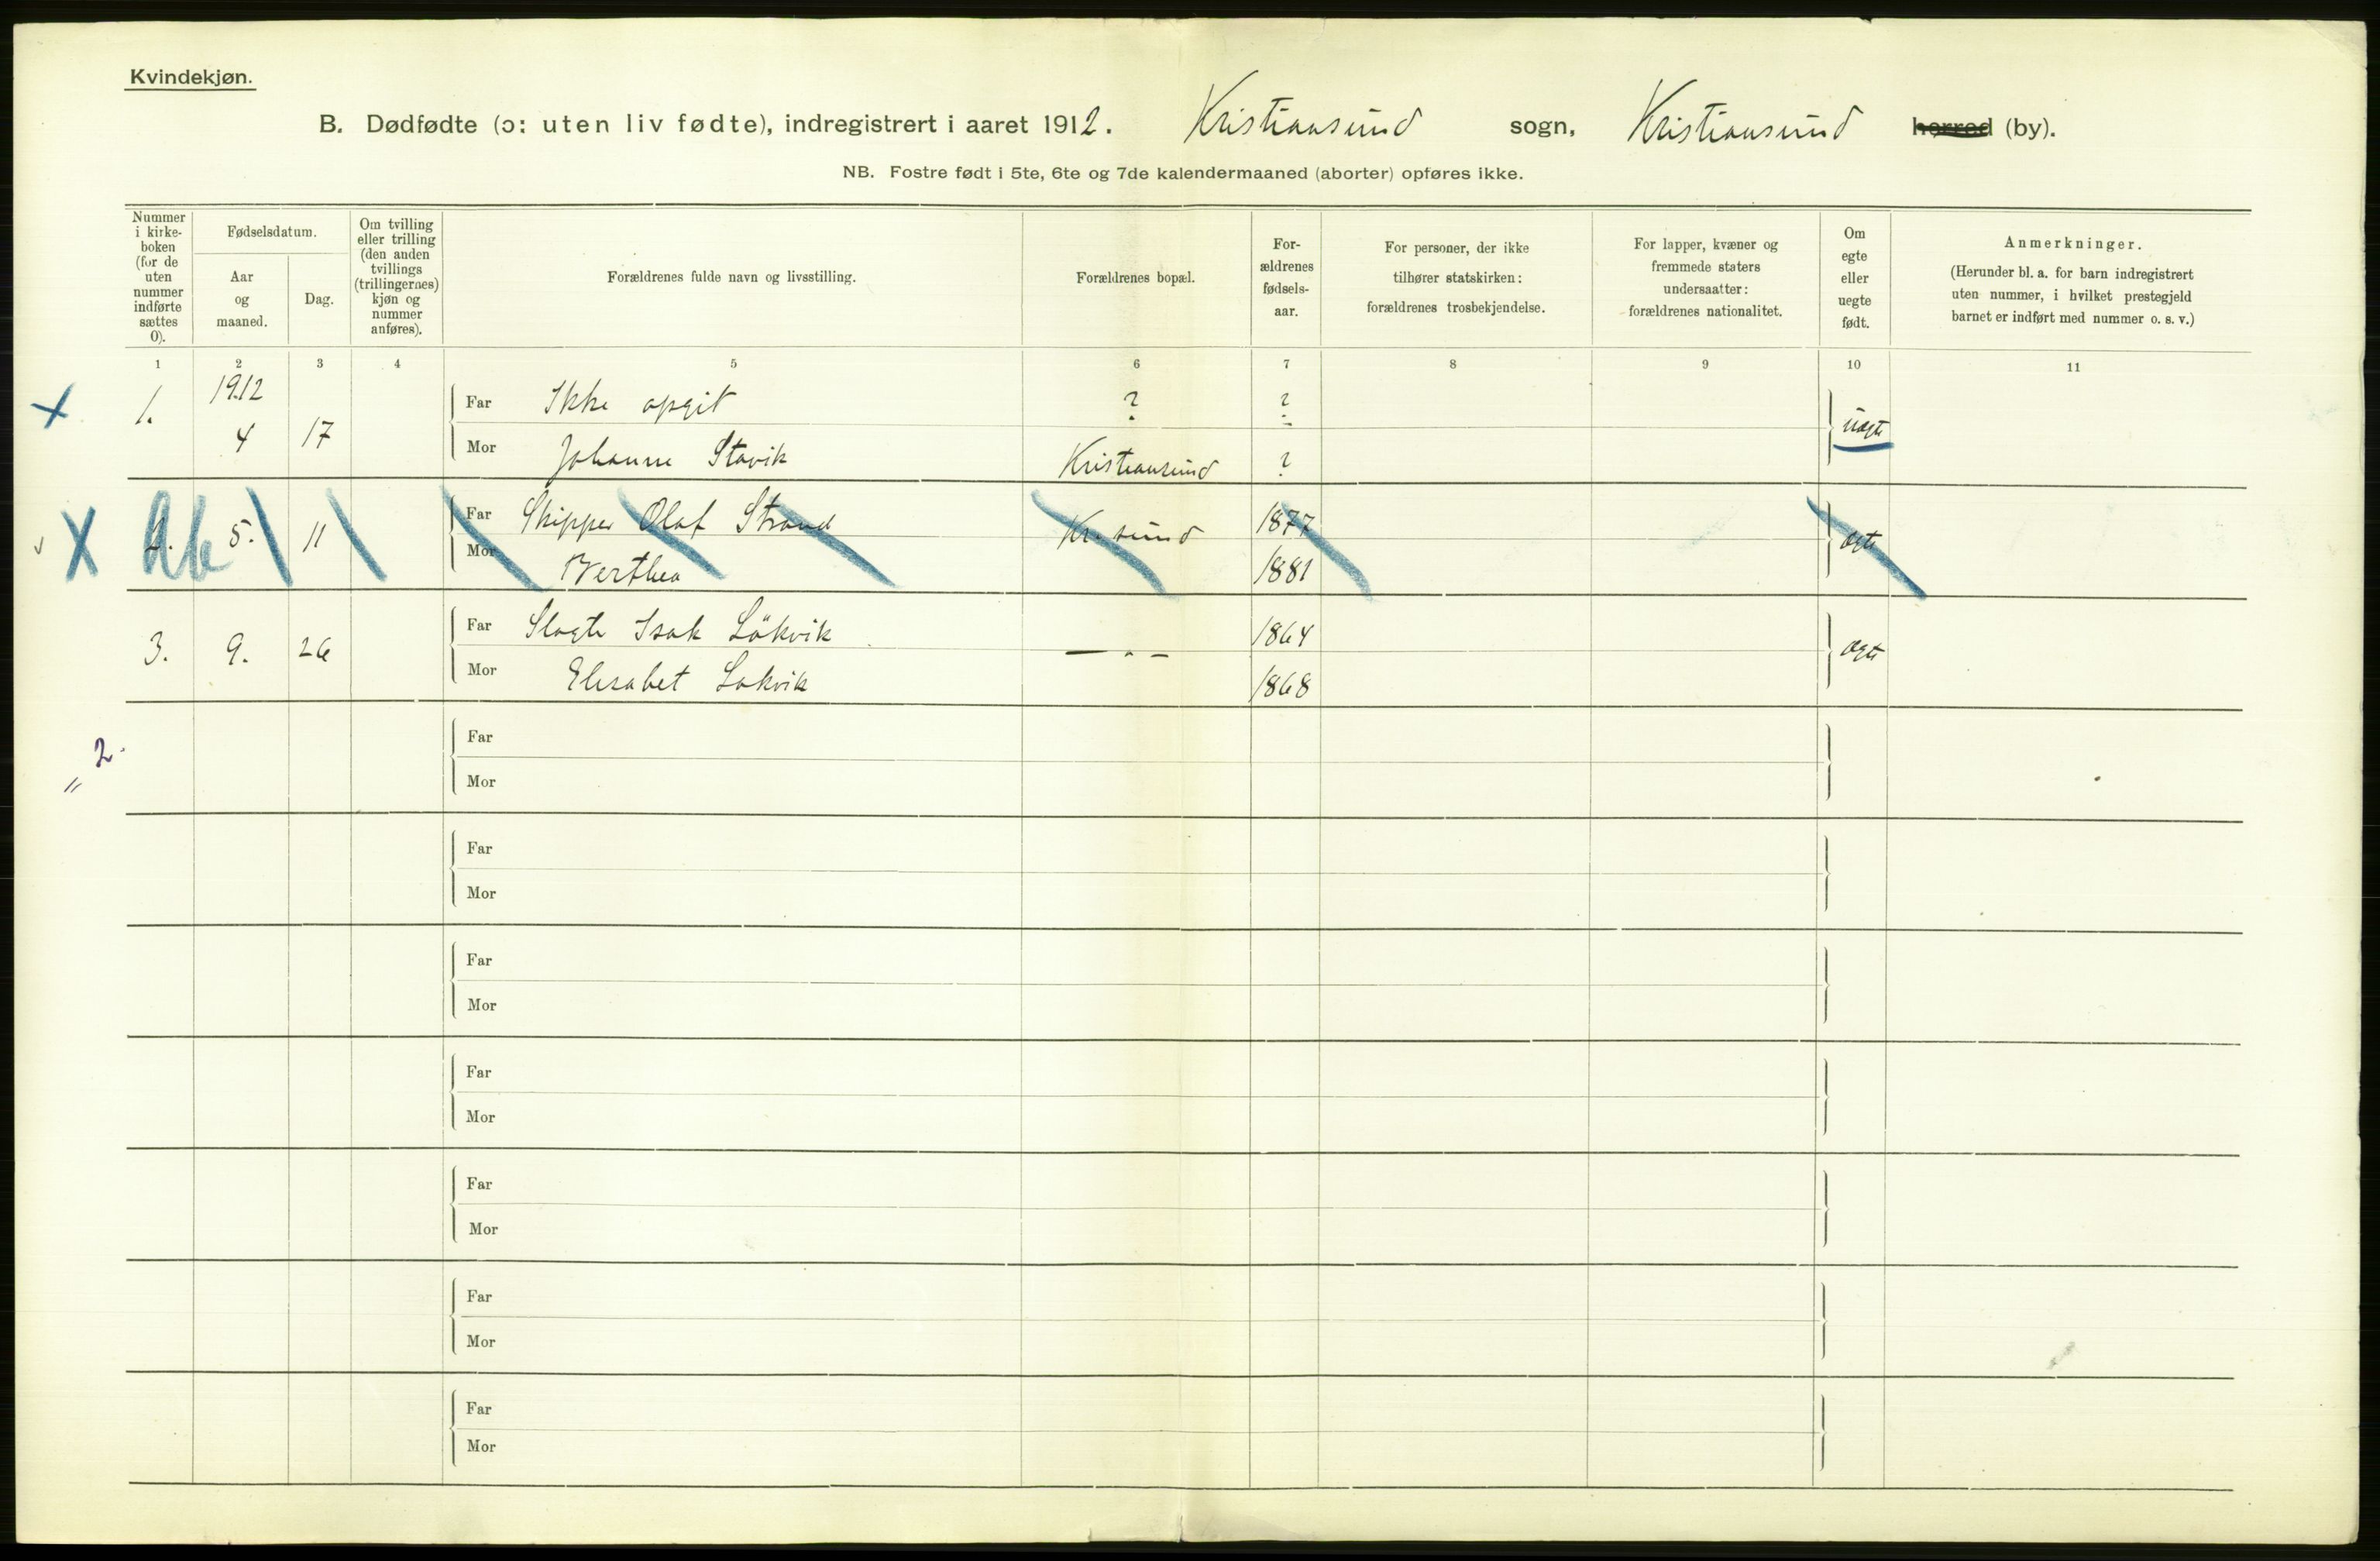 Kvindekjøn.
B. Dødfødte (ɔ: uten liv fødte), indregistrert i aaret 1912. Kristiansund sogn, Kristiansund herred (by).
NB. Fostre født i 5te, 6te og 7de kalendermaaned (aborter) opføres ikke.
Nummer i kirke-boken (for de uten nummer indførte sættes 0).
Fødselsdatum.
Aar og maaned.
Dag.
Om tvilling eller trilling (den anden tvillings (trillingernes) kjøn og nummer anføres).
Forældrenes fulde navn og livsstilling.
Forældrenes bopæl.
For-ældrenes fødsels-aar.
For personer, der ikke tilhører statskirken: forældrenes trosbekjendelse.
For lapper, kvæner og fremmede staters undersaatter: forældrenes nationalitet.
Om egte eller uegte født.
Anmerkninger.
(Herunder bl. a. for barn indregistrert uten nummer, i hvilket prestegjeld barnet er indført med nummer o. s. v.)
1 2 3 4 5 6 7 8 9 10 11
x 1. 1912 4 17 Far Ikke opgit ? ? uægte
Mor Johanne Stavik Kristiansund ?
X 2. 5. 11 Far Skipper Olaf Strand Kr.sund 1877 ægte
Mor Berthea 1881
3. 9. 26 Far Slagte Isak Løkvik — " — 1864 ægte
Mor Elisabet Lokvik 1868
Far
" 2
Mor
Far
Mor
Far
Mor
Far
Mor
Far
Mor
Far
Mor
Far
Mor